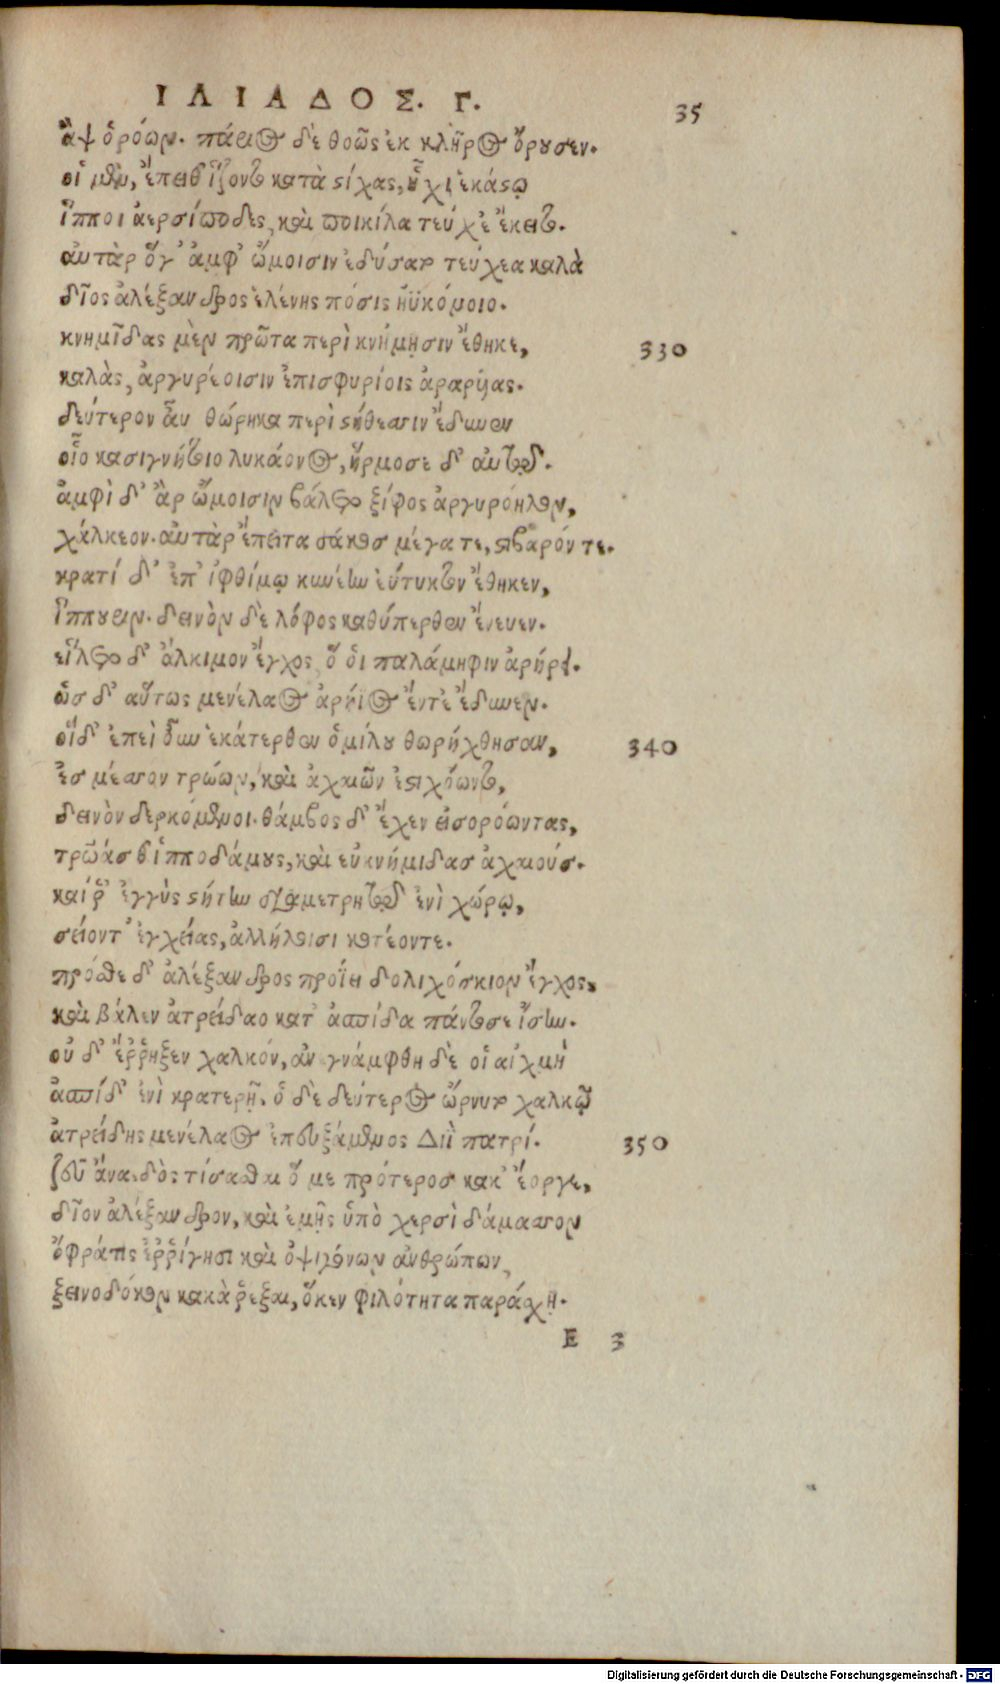 ΙΛΙΑΔΟΣ. Γ.
35
ἂψ ὁρόων. πάριος δὲ θοῶς ἐκ κλῆρος ὄρουσεν.
οἱ μὲν, ἔπειθ' ἵζοντο κατὰ στίχας, ᾗχι ἑκάστῳ
ἵπποι ἀερσίποδες, καὶ ποικίλα τεύχε' ἔκειτο.
αὐτὰρ ὅγ' ἀμφ' ὤμοισιν ἐδύσατο τεύχεα καλὰ
δῖος ἀλέξανδρος ἑλένης πόσις ἠϋκόμοιο.
κνημῖδας μὲν πρῶτα περὶ κνήμῃσιν ἔθηκε,
330
καλὰς, ἀργυρέοισιν ἐπισφυρίοις ἀραρῥας.
δεύτερον ἆυ θώρηκα περὶ στήθεσσιν ἔδυνεν
οἷο κασιγνήτοιο λυκάονος, ἥρμοσε δ' αὐτῷ.
ἀμφὶ δ' ἂρ ὤμοισιν βάλετο ξίφος ἀργυρόηλον,
χάλκεον. αὐτὰρ ἔπειτα σάκος μέγα τε, στιβαρόν τε.
κρατί δ' ἐπ' ἰφθίμῳ κυνέην ἐύτυκτον ἔθηκεν,
ἵππουριν. δεινὸν δὲ λόφος καθύπερθεν ἔνευεν.
εἵλετο δ' ἄλκιμον ἔγχος ὅ ὁι παλάμηφιν ἀρήρει.
ὣσ δ' αὔτως μενέλαος ἀρήϊος ἔντε' ἔδυνεν.
οἵδ' ἐπεὶ ὖν ἑκάτερθεν ὁμίλου θωρήχθησαν,
340
ἐσ μέσσον τρώων, καὶ ἀχαιῶν ἐστιχόωντο,
δεινὸν δερκόμενοι. θάμβος δ' ἔχεν εἰσορόωντας,
τρῶάσ θ' ἱπποδάμους, καὶ εὐκνήμιδασ ἀχαιούσ.
καί ῥ' ἐγγὺς στήτην διαμετρητῷ ἐνὶ χώρῳ,
σείοντ' ἐγχείας, ἀλλήλοισι κοτέοντε.
πρόσθε δ' ἀλέξανδρος προΐει δολιχόσκιον ἔγχος,
καὶ βάλεν ἀτρείδαο κατ' ἀσπίδα πάντοσε ἴσην.
οὐ δ' ἔῤῥηξεν χαλκόν, ἀν γνάμφθη δὲ οἱ αἰχμὴ
ἀσπίδ' ἐνὶ κρατερῇ. ὁ δὲ δεύτερος ὤρνυτο χαλκῷ
ἀτρείδης μενέλαος ἐπευξάμενος Διῒ πατρί.
350
ζεῦ ἄνα. δὸς τίσασθαι ὅ με πρότεροσ κακ' ἔοργε,
δῖον ἀλέξανδρον, καὶ ἐμῇς ὑπὸ χερσὶ δάμασσον
ὄφρά τις ἐῤῥίγησι καὶ ὀψιγόνων ἀνθρώπων,
ξεινοδόκον κακὰ ῥέξαι, ὅκεν φιλότητα παράσχῃ.
E 3
Digitalisierung gefördert durch die Deutsche Forschungsgemeinschaft - DFG